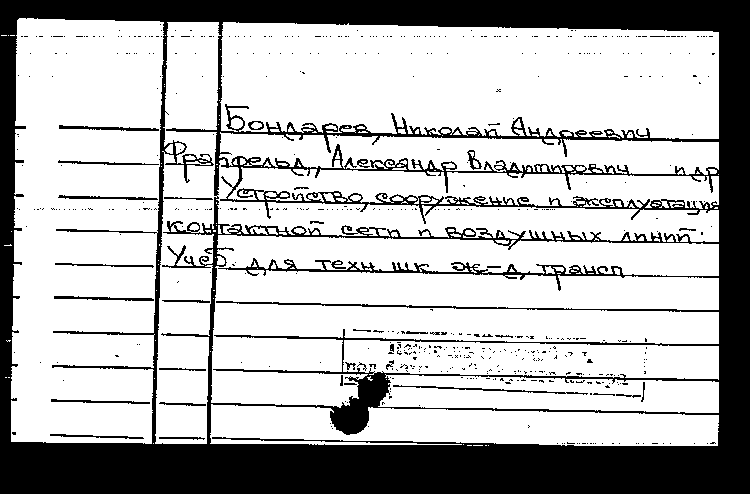 Бондарев, Николай Андреевич
Фрайфельд, Александр Владимирович и др
Устройство, сооружение и эксплуатация
контактной сети и воздушных линий:
Учеб. для техн. шк ж-д, трансп